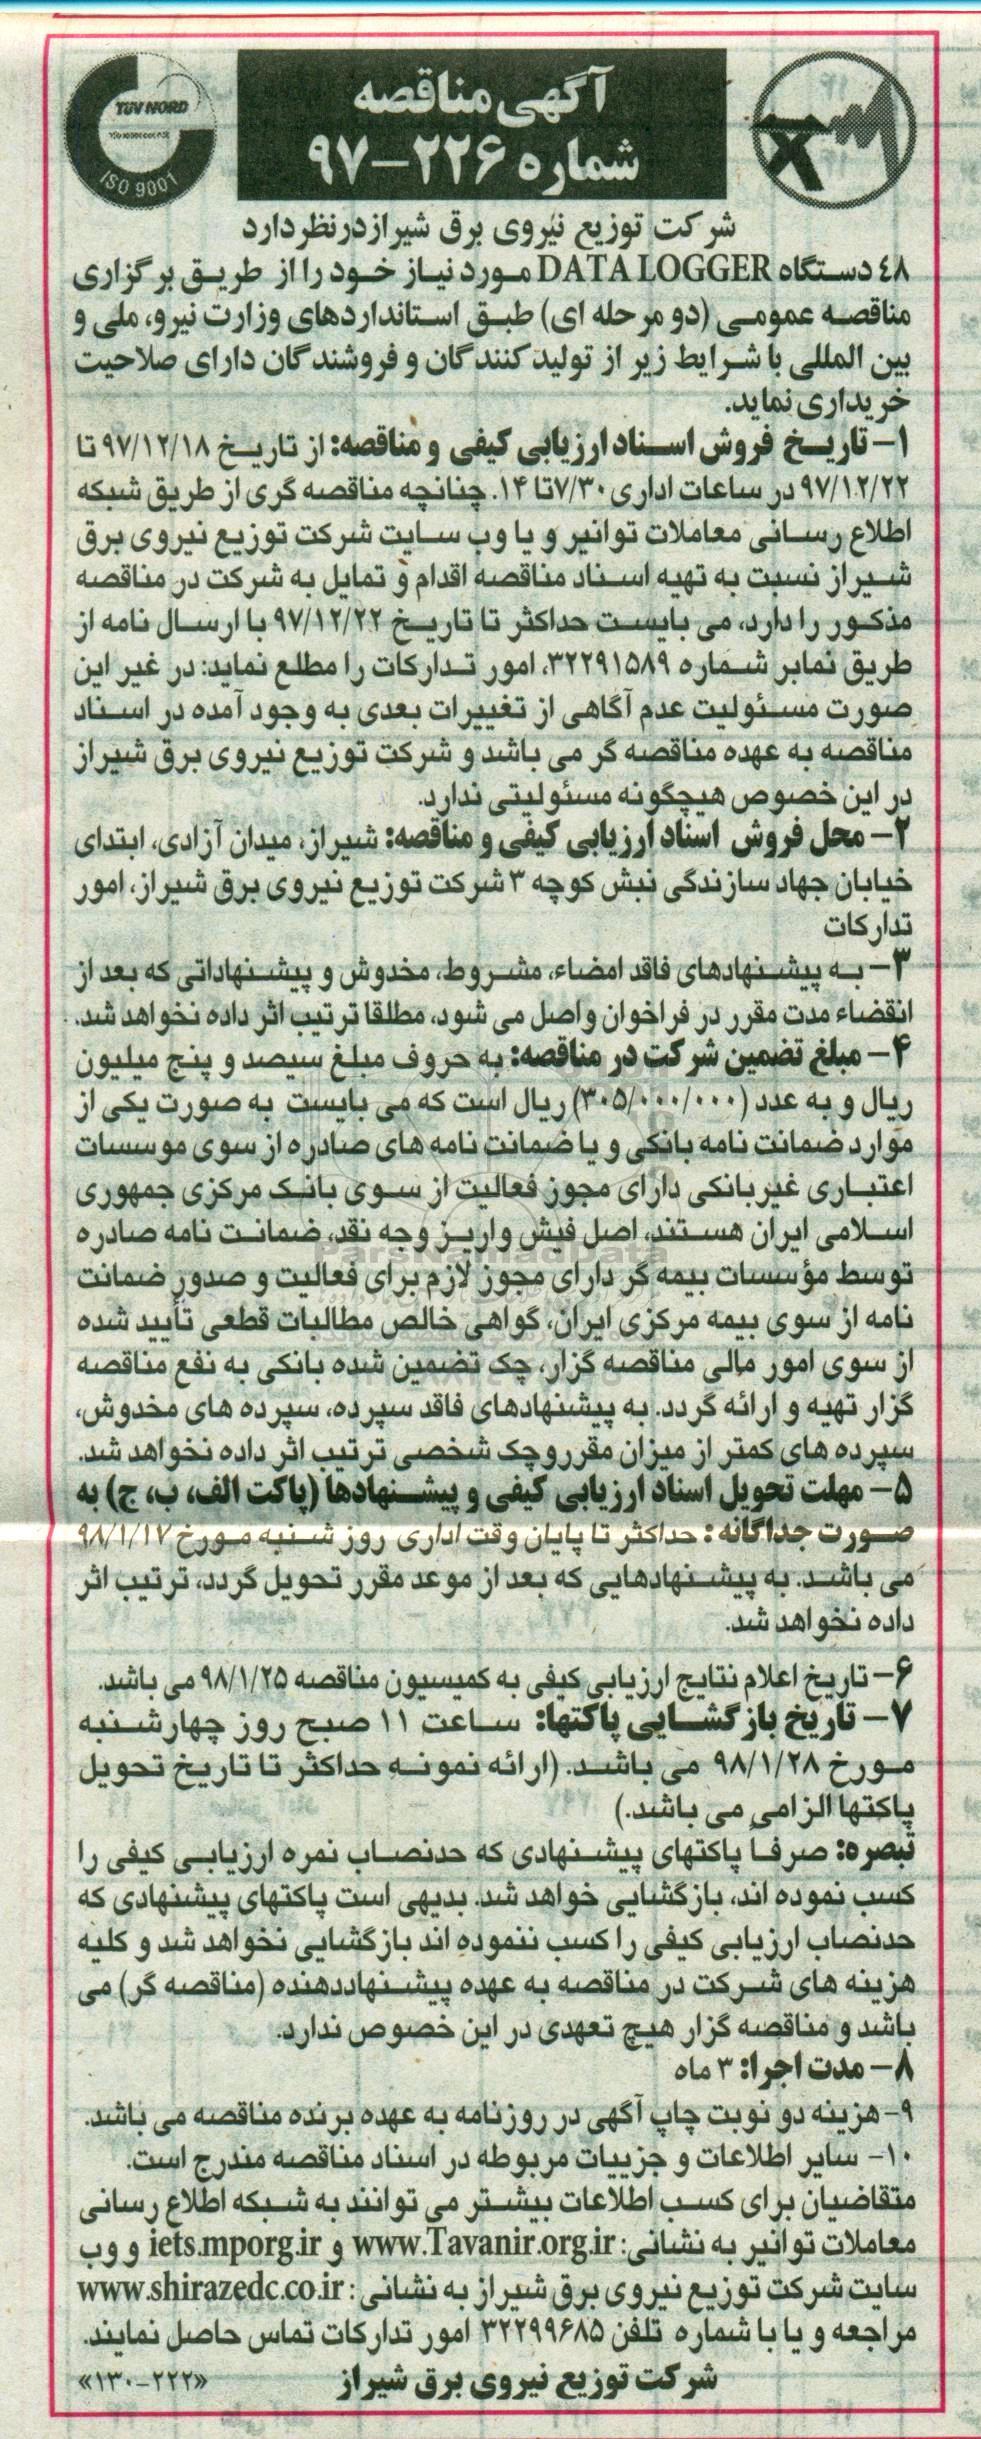 آگهی مناقصه
شماره ۲۲۶-۹۷
TÜV NORD
ISO 9001
شرکت توزیع نیروی برق شیراز در نظر دارد
۴۸ دستگاه DATA LOGGER مورد نیاز خود را از طریق برگزاری
مناقصه عمومی (دو مرحله ای) طبق استانداردهای وزارت نیرو، ملی و
بین المللی با شرایط زیر از تولید کنندگان و فروشندگان دارای صلاحیت
خریداری نماید.
۱- تاریخ فروش اسناد ارزیابی کیفی و مناقصه: از تاریخ ۹۷/۱۲/۱۸ تا
۹۷/۱۲/۲۲ در ساعات اداری ۷/۳۰ تا ۱۴. چنانچه مناقصه گری از طریق شبکه
اطلاع رسانی معاملات توانیر و یا وب سایت شرکت توزیع نیروی برق
شیراز نسبت به تهیه اسناد مناقصه اقدام و تمایل به شرکت در مناقصه
مذکور را دارد، می بایست حداکثر تا تاریخ ۹۷/۱۲/۲۲ با ارسال نامه از
طریق نمابر شماره ۳۲۲۹۱۵۸۹، امور تدارکات را مطلع نماید: در غیر این
صورت مسئولیت عدم آگاهی از تغییرات بعدی به وجود آمده در اسناد
مناقصه به عهده مناقصه گر می باشد و شرکت توزیع نیروی برق شیراز
در این خصوص هیچگونه مسئولیتی ندارد.
۲- محل فروش اسناد ارزیابی کیفی و مناقصه: شیراز، میدان آزادی، ابتدای
خیابان جهاد سازندگی نبش کوچه ۳ شرکت توزیع نیروی برق شیراز، امور
تدارکات
۳- به پیشنهادهای فاقد امضاء، مشروط، مخدوش و پیشنهاداتی که بعد از
انقضاء مدت مقرر در فراخوان واصل می شود، مطلقا ترتیب اثر داده نخواهد شد.
۴- مبلغ تضمین شرکت در مناقصه: به حروف مبلغ سیصد و پنج میلیون
ریال و به عدد (۳۰۵/۰۰۰/۰۰۰) ریال است که می بایست به صورت یکی از
موارد ضمانت نامه بانکی و یا ضمانت نامه های صادره از سوی موسسات
اعتباری غیربانکی دارای مجوز فعالیت از سوی بانک مرکزی جمهوری
اسلامی ایران هستند، اصل فیش واریز وجه نقد، ضمانت نامه صادره
توسط مؤسسات بیمه گر دارای مجوز لازم برای فعالیت و صدور ضمانت
نامه از سوی بیمه مرکزی ایران، گواهی خالص مطالبات قطعی تأیید شده
از سوی امور مالی مناقصه گزار، چک تضمین شده بانکی به نفع مناقصه
گزار تهیه و ارائه گردد. به پیشنهادهای فاقد سپرده، سپرده های مخدوش،
سپرده های کمتر از میزان مقرر و چک شخصی ترتیب اثر داده نخواهد شد.
ParsNamadData
۵- مهلت تحویل اسناد ارزیابی کیفی و پیشنهادها (پاکت الف، ب، ج) به
صورت جداگانه: حداکثر تا پایان وقت اداری روز شنبه مورخ ۹۸/۱/۱۷
می باشد. به پیشنهادهایی که بعد از موعد مقرر تحویل گردد، ترتیب اثر
داده نخواهد شد.
۶- تاریخ اعلام نتایج ارزیابی کیفی به کمیسیون مناقصه ۹۸/۱/۲۵ می باشد.
۷- تاریخ بازگشایی پاکتها: ساعت ۱۱ صبح روز چهارشنبه
مورخ ۹۸/۱/۲۸ می باشد. (ارائه نمونه حداکثر تا تاریخ تحویل
پاکتها الزامی می باشد.)
تبصره: صرفا پاکتهای پیشنهادی که حدنصاب نمره ارزیابی کیفی را
کسب نموده اند، بازگشایی خواهد شد. بدیهی است پاکتهای پیشنهادی که
حدنصاب ارزیابی کیفی را کسب ننموده اند بازگشایی نخواهد شد و کلیه
هزینه های شرکت در مناقصه به عهده پیشنهاددهنده (مناقصه گر) می
باشد و مناقصه گزار هیچ تعهدی در این خصوص ندارد.
۸- مدت اجرا: ۳ ماه
۹- هزینه دو نوبت چاپ آگهی در روزنامه به عهده برنده مناقصه می باشد.
۱۰- سایر اطلاعات و جزییات مربوطه در اسناد مناقصه مندرج است.
متقاضیان برای کسب اطلاعات بیشتر می توانند به شبکه اطلاع رسانی
معاملات توانیر به نشانی: www.Tavanir.org.ir و iets.mporg.ir و وب
سایت شرکت توزیع نیروی برق شیراز به نشانی: www.shirazedc.co.ir
مراجعه و یا با شماره تلفن ۳۲۲۹۹۶۸۵ امور تدارکات تماس حاصل نمایند.
شرکت توزیع نیروی برق شیراز «۱۳۰-۲۲۲»